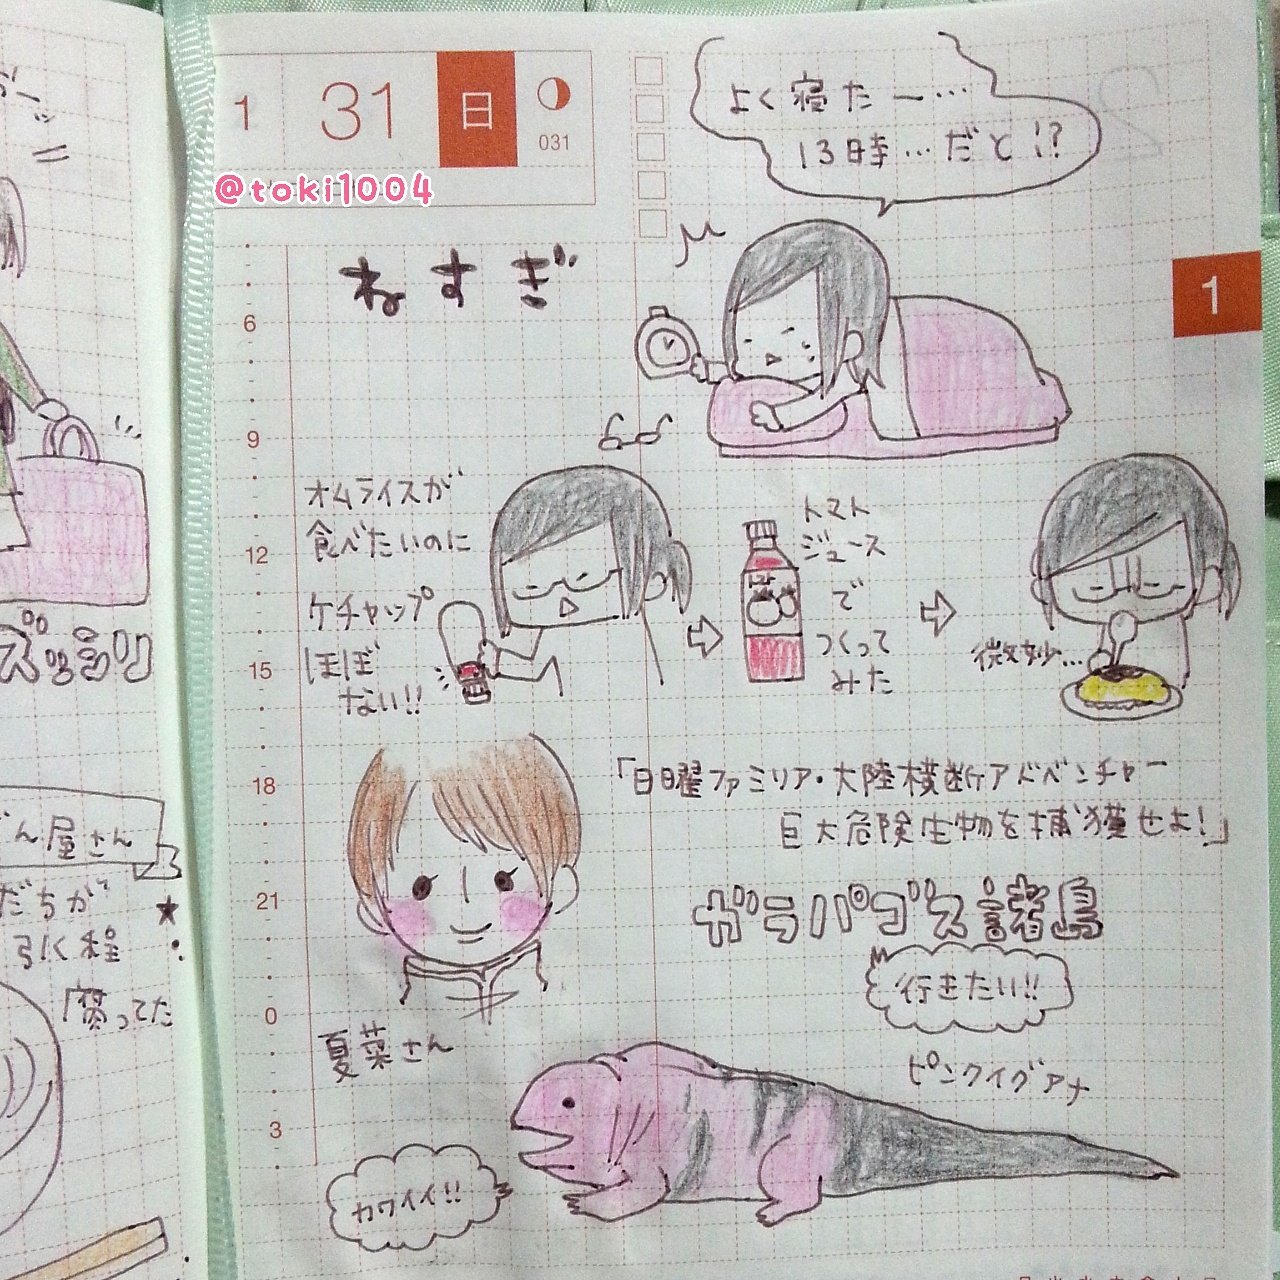 1 31 日
031
@toki1004
よく寝たー…
13時…だと!?
ねすぎ
1
6
9
12
15
18
21
0
3
オムライスが
食べたいのに
ケチャップ
ほぼ
ない!!
トマト
ジュース
で
つくって
みた
微妙…
「日曜ファミリア・大陸横断アドベンチャー
巨大危険生物を捕獲せよ!」
ガラパゴス諸島
行きたい!!
夏菜さん
ピンクイグアナ
カワイイ!!
ズッシリ
ん屋さん
だちが
引く程